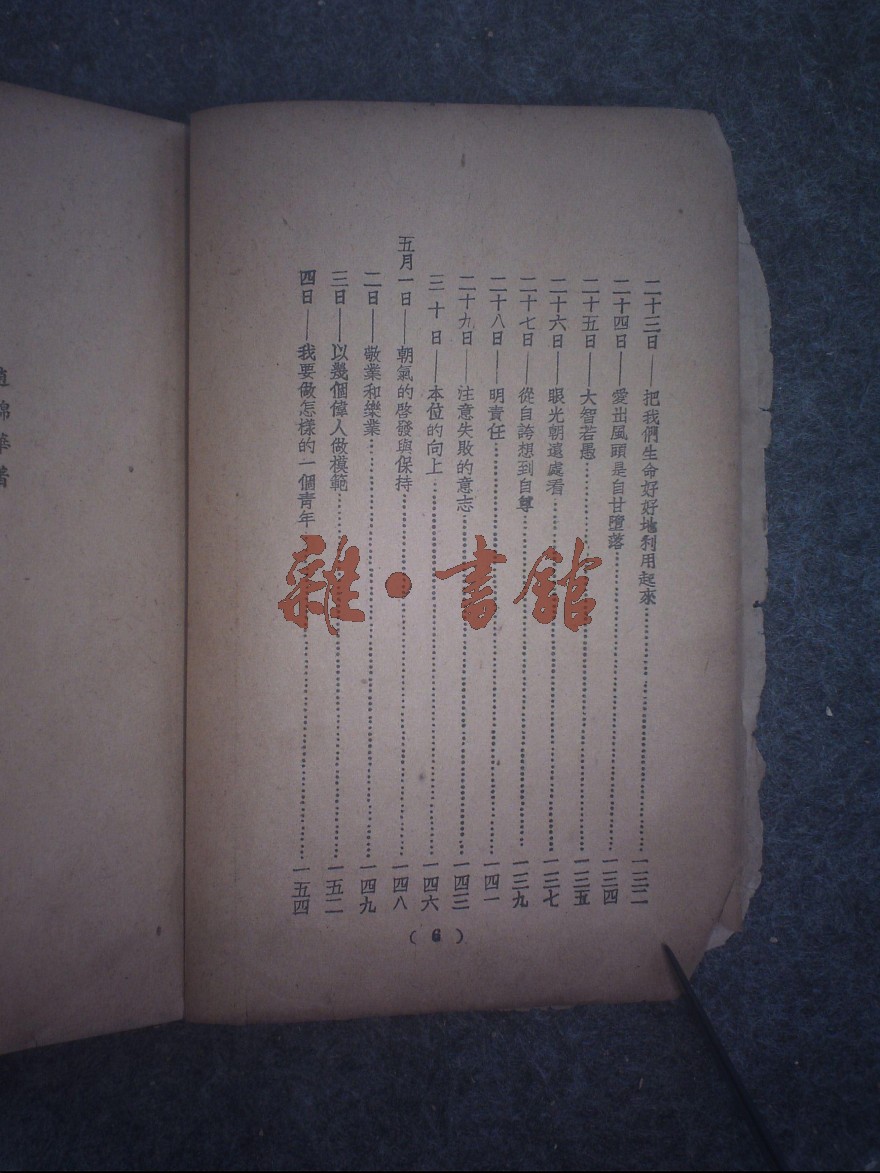 二十三日——把我們生命好好地利用起來……一三二
二十四日——愛出風頭是自甘墮落……一三四
二十五日——大智若愚……一三五
二十六日——眼光朝遠處看……一三七
二十七日——從自誇想到自尊……一三九
二十八日——明責任……一四一
二十九日——注意失敗的意志……一四三
三十日——本位的向上……一四六
五月一日——朝氣的啓發與保持……一四八
二日——敬業和樂業……一四九
三日——以幾個偉人做模範……一五二
四日——我要做怎樣的一個青年……一五四
( 6 )
錦華著
雜·書館